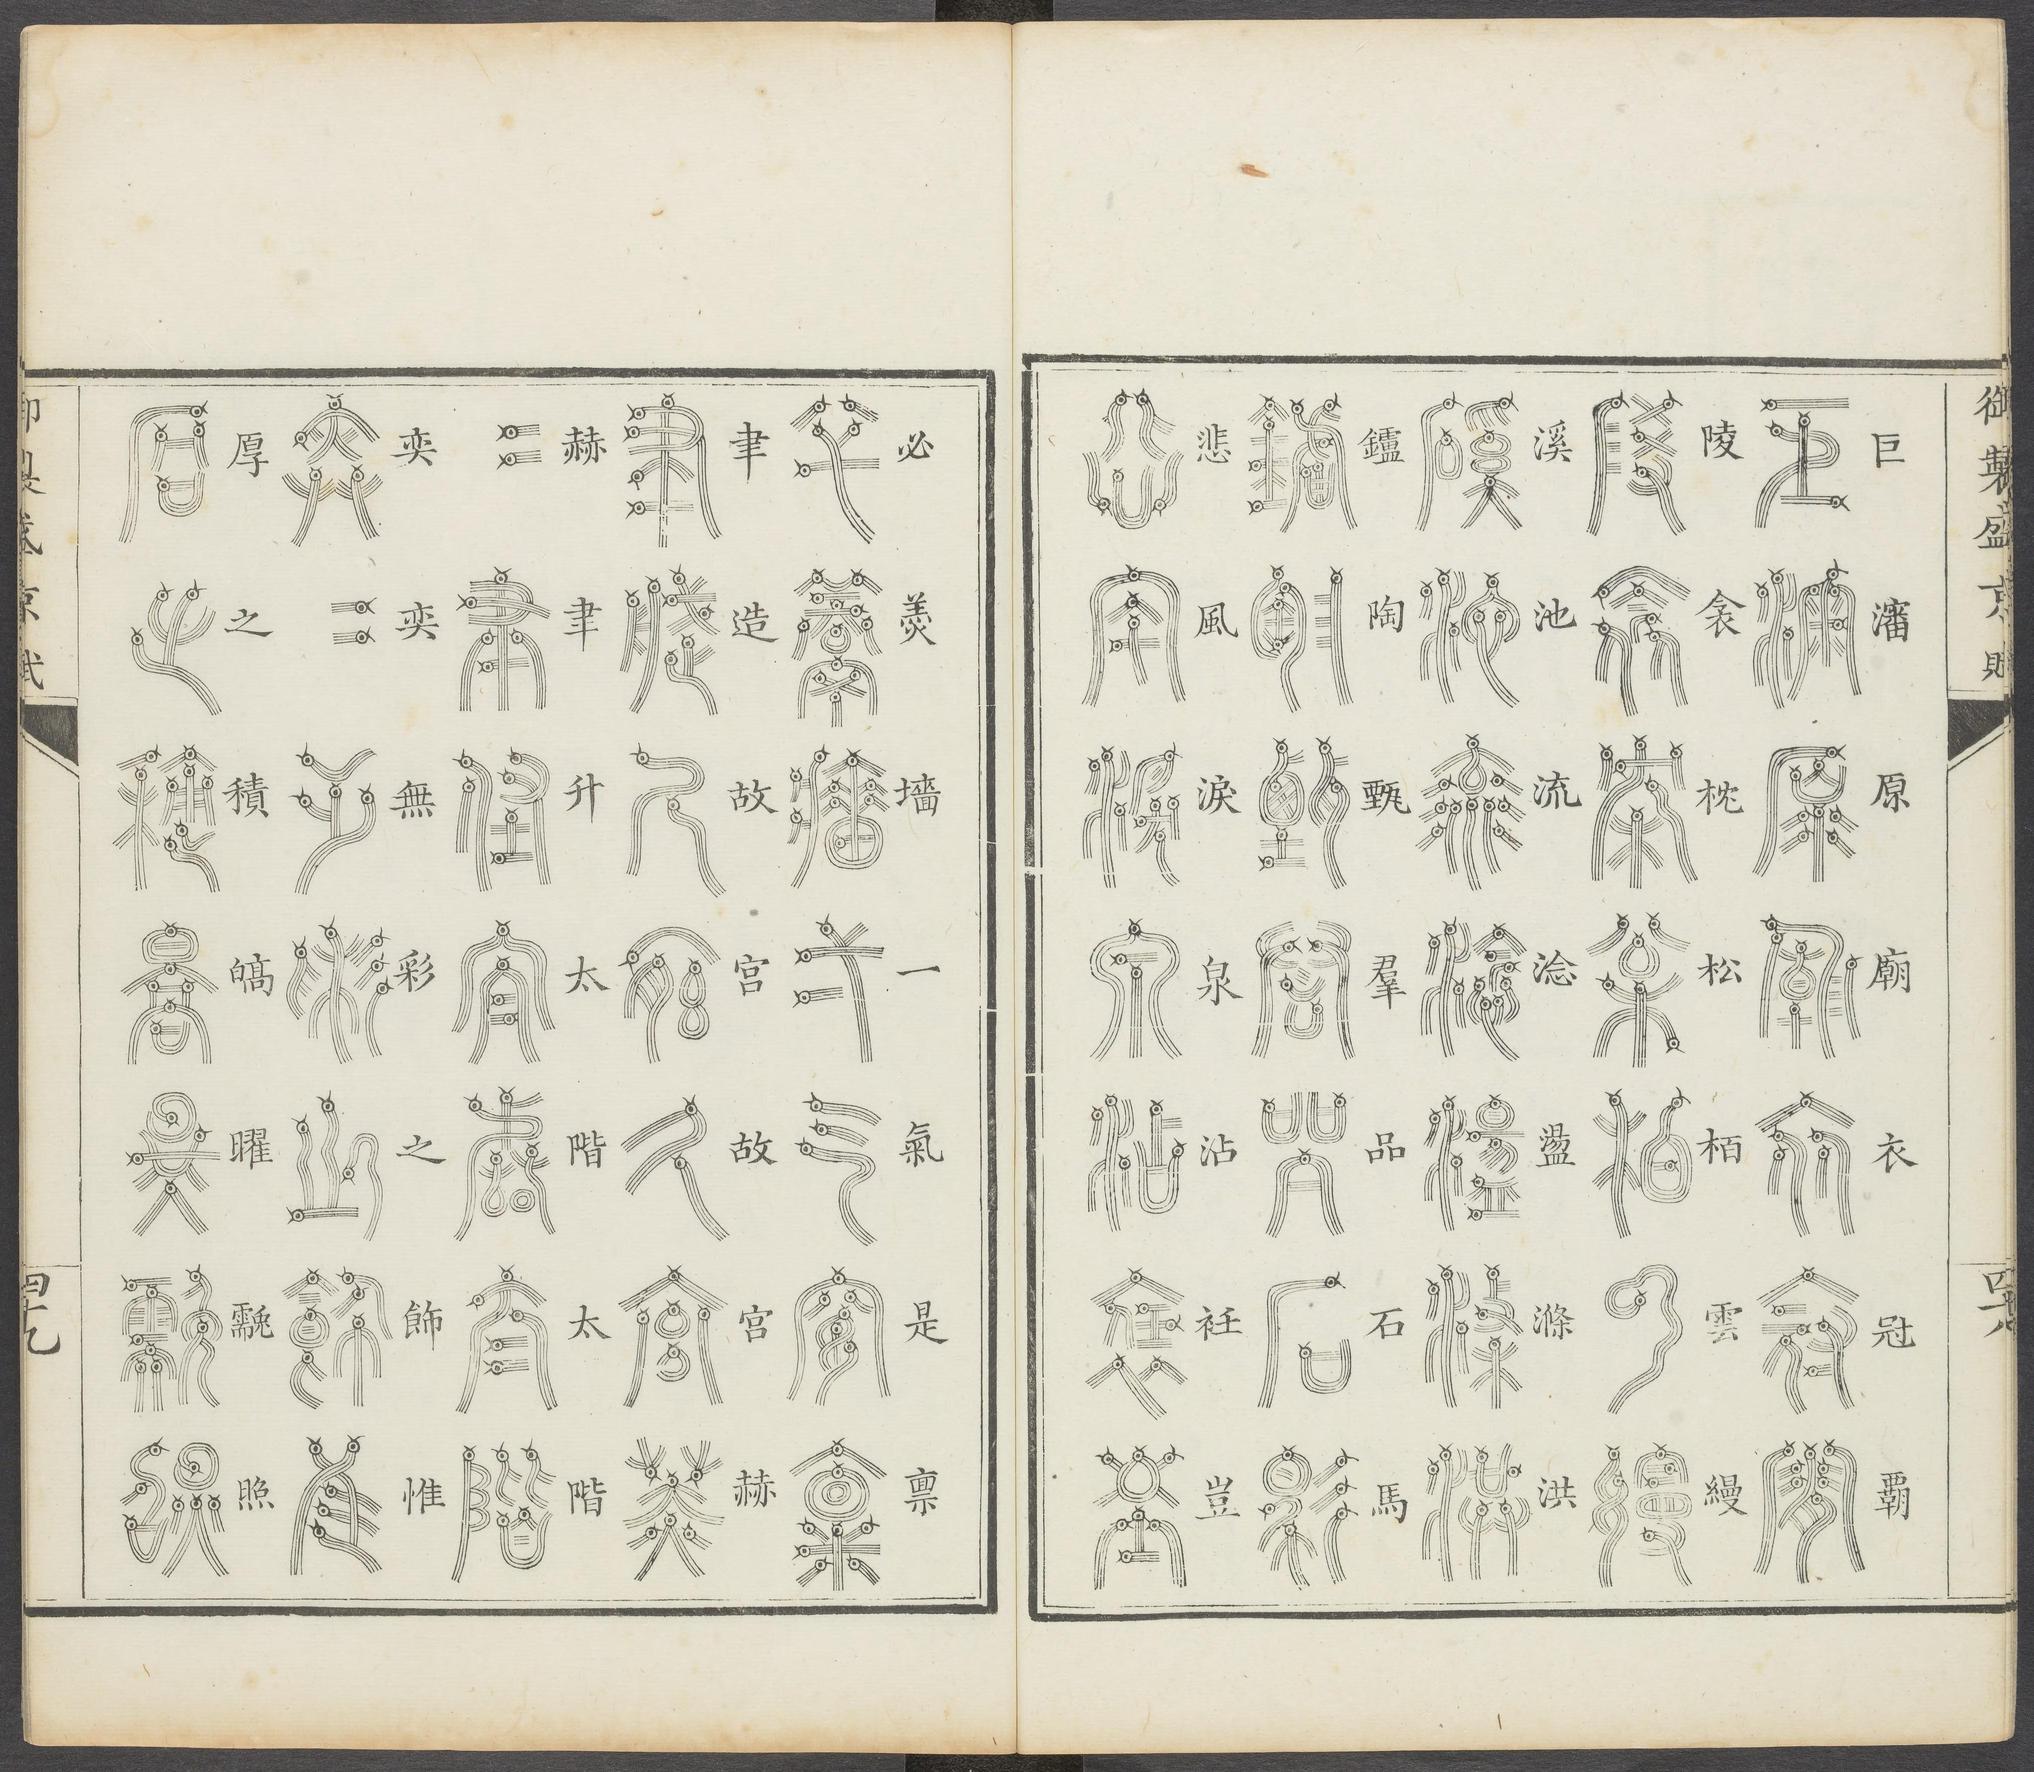 御製盛京賦
巨瀋原廟衣冠覇
陵衾枕松栢雲縵
溪池流淰盪滌洪
鑪陶甄羣品石馬
悲風淚泉沾衽豈
四十八
必羨墻一氣是禀
聿造故宮故宮赫
赫聿升太階太階
奕奕無彩之飾惟
厚之積皜曜靉照
御製盛京賦
四十九